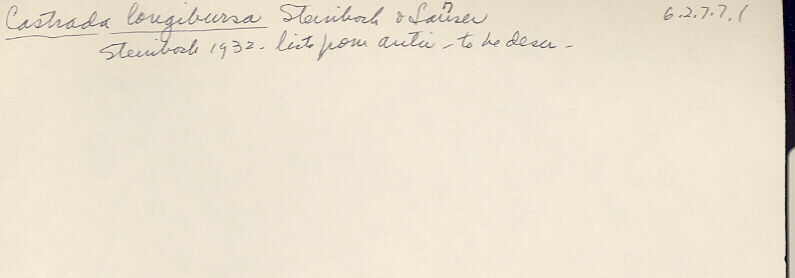 Castrada longibursa Steinbock & 6.2.7.7.1
Steinbock 1932 - lists from - to be descr -